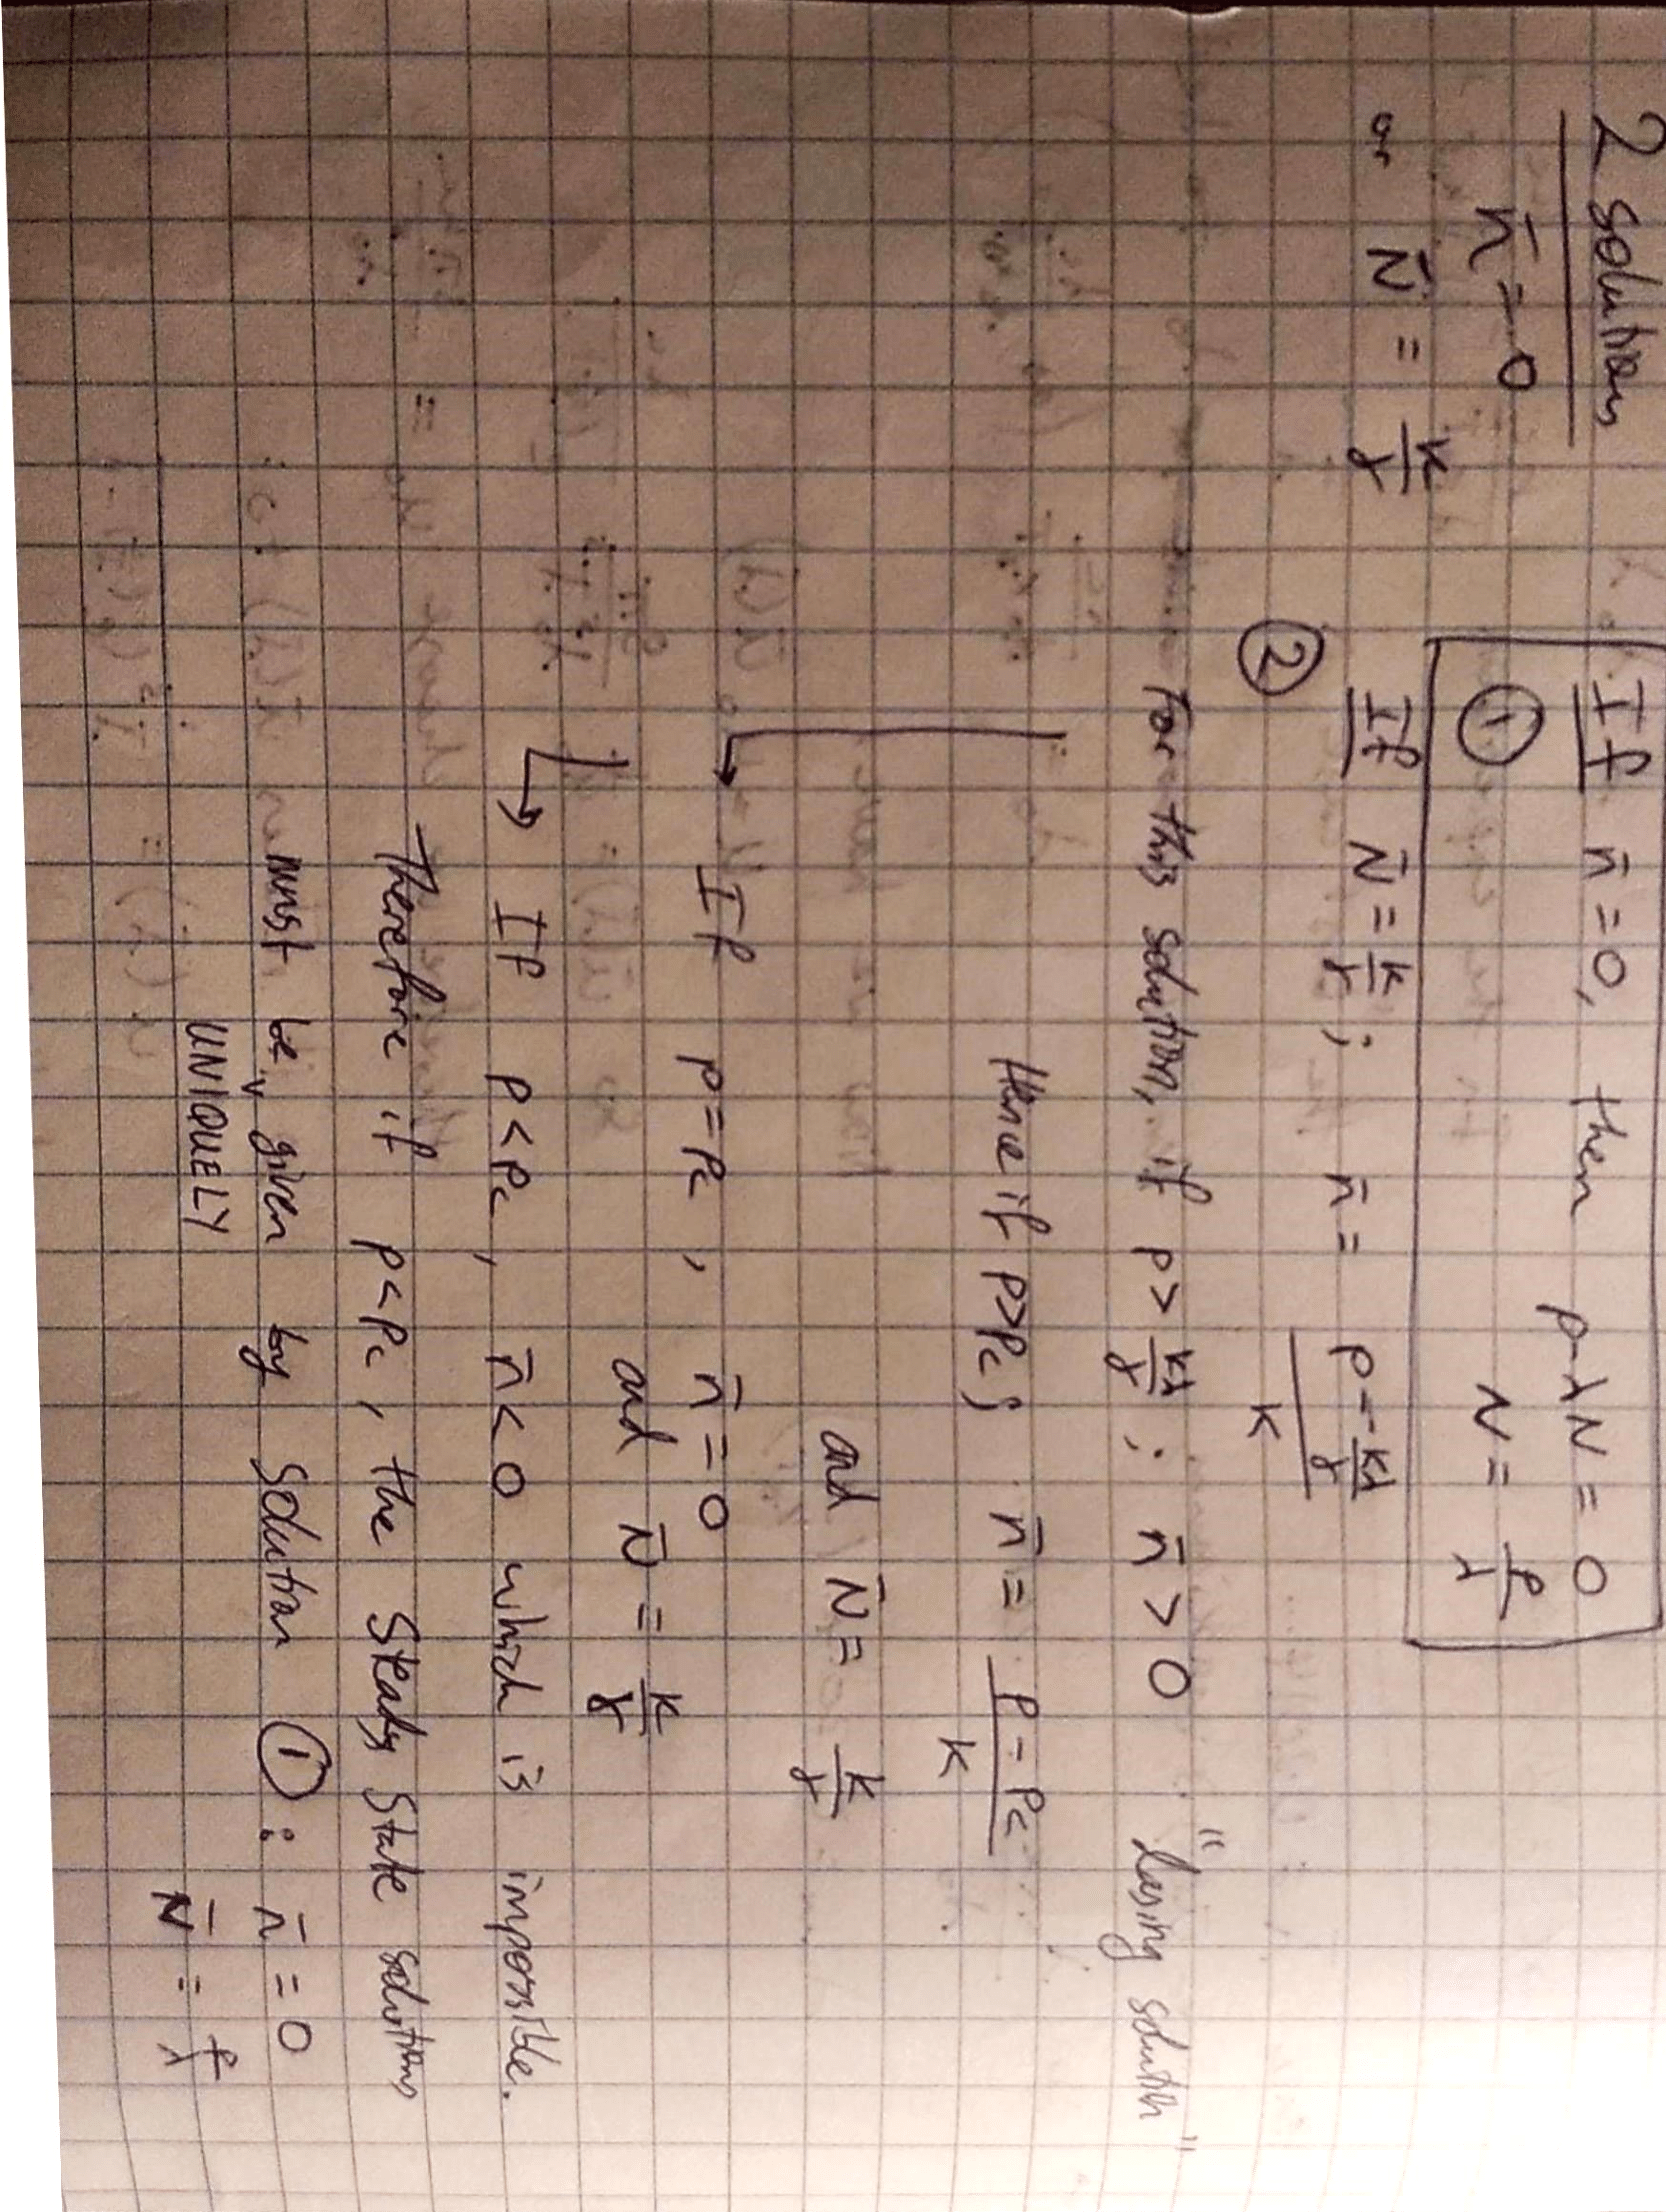 2 solutions
n̄ = 0
or N̄ = κ/γ
If n̄ = 0, then p-λN = 0
① N = p/λ
If N̄ = κ/γ ; n̄ = (p - κλ/γ)/κ
②
For this solution, if p > κλ/γ ; n̄ > 0 "Lasing solution"
Hence if p>pc ; n̄ = (p - pc)/κ
and N̄ = κ/γ
If p = pc , n̄ = 0
and N̄ = κ/γ
If p < pc , n̄ < 0 which is impossible.
Therefore if p<pc , the Steady State solutions
must be given by solution ① : n̄ = 0
UNIQUELY N̄ = p/λ